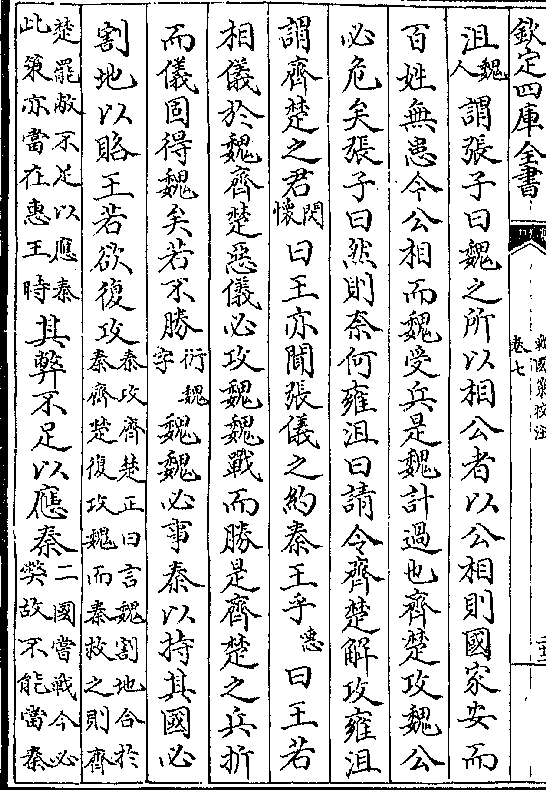 欽定四庫全書
戰國策校注
卷七
沮魏人謂張子曰魏之所以相公者以公相則國家安而
百姓無患今公相而魏受兵是魏計過也齊楚攻魏公
必危矣張子曰然則奈何雍沮曰請令齊楚解攻雍沮
謂齊楚之君閔懷曰王亦聞張儀之約秦王乎惠曰王若
相儀於魏齊楚惡儀必攻魏魏戰而勝是齊楚之兵折
而儀固得魏矣若不勝衍魏字魏魏必事秦以持其國必
割地以賂王若欲復攻秦攻齊楚正曰言魏割地合於秦齊楚復攻魏而秦救之則齊
楚罷敝不足以應秦此策亦當在惠王時其弊不足以應秦二國當戰今必獘故不能當秦